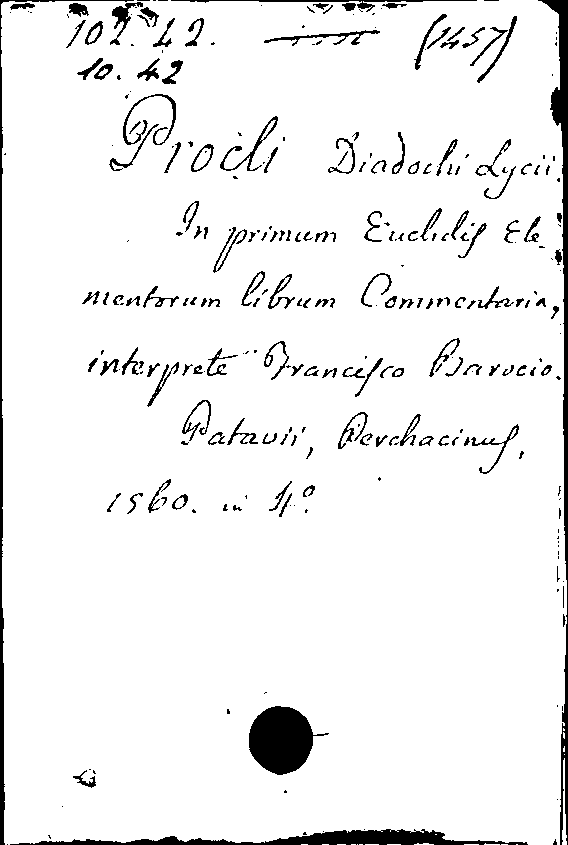 102. 42. (1457)
10. 42
Procli Diadochi Lycii.
In primum Euclidis Ele-
mentorum librum Commentaria,
interprete Francisco Barocio.
Patavii, Perchacinus,
1560. in 4º